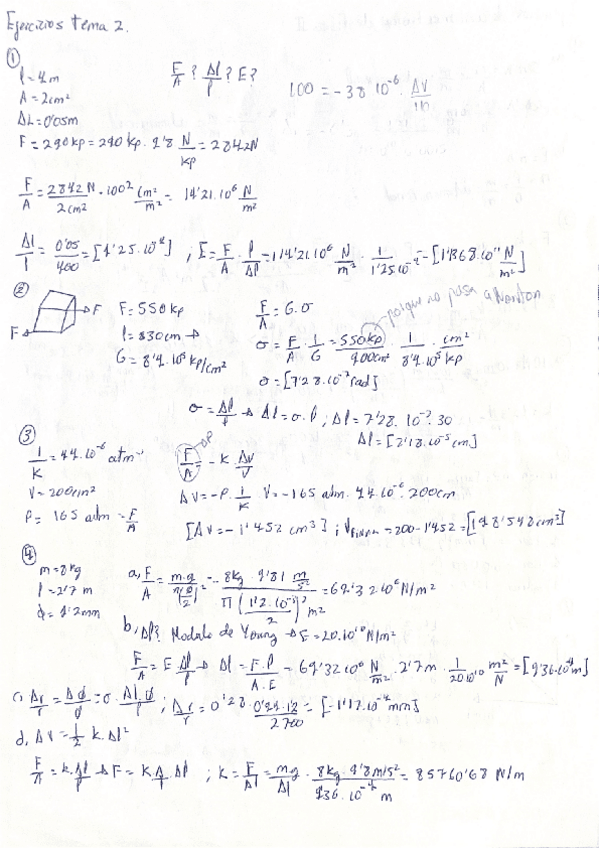 Ejercicios tema 2.
①
l = 4m
A = 2cm²
ΔL = 0'05m
F/A ? Δl/l ? E?
100 = -38 10⁻⁶ · ΔV/
F = 290kp = 290 kp · 9'8 N/kp = 2842N
F/A = 2842N/2cm² · 100² cm²/m² = 14'21·10⁶ N/m²
Δl/l = 0'05/400 = [1'25·10⁻⁴] ; E = F/A · l/Δl = 14'21·10⁶ N/m² · 1/1'25·10⁻⁴ = [1'1368·10¹¹ N/m²]
②
F
F
F = 550kp
l = 30cm →
G = 8'4·10⁵ kp/cm²
F/A = G·σ
porque no pasa a Newton
σ = F/A · 1/G = 550kp/900cm² · 1/8'4·10⁵ · cm²/kp
σ = [7'28·10⁻⁷ rad]
σ = Δl/l → Δl = σ·l ; Δl = 7'28·10⁻⁷·30
Δl = [2'18·10⁻⁵ cm]
③
1/K = 44·10⁻⁶ atm⁻¹
V = 200cm³
P = 165 atm = F/A
ΔP
F/A = -K·ΔV/V
ΔV = -P·1/K·V = -165 atm·44·10⁻⁶·200cm
[ΔV = -1'452 cm³] ; V_FINAL = 200-1'452 = [198'548cm³]
④
m = 8kg
l = 2'7 m
ϕ = 1'2mm
a, F/A = m·g/π(ϕ/2)² = 8kg·9'81 m/s² / π(1'2·10⁻³/2)² m² = 69'32·10⁶ N/m²
b, Δl? Modulo de Young → E = 20·10¹⁰ N/m²
F/A = E Δl/l → Δl = F·l/A·E = 69'32·10⁶ N/m² · 2'7m · 1/20·10¹⁰ m²/N = [9'36·10⁻⁴m]
c, Δr/r = Δϕ/ϕ = σ·Δl·ϕ/l ; Δr/r = 0'28·
d, ΔV = 1/2 k·Δl²
F/A = k·Δl/l → F = K·A/l·Δl ; K = F/Δl = mg/Δl = 8kg·9'8m/s² / 9'36·10⁻⁴ m = 85760'68 N/m